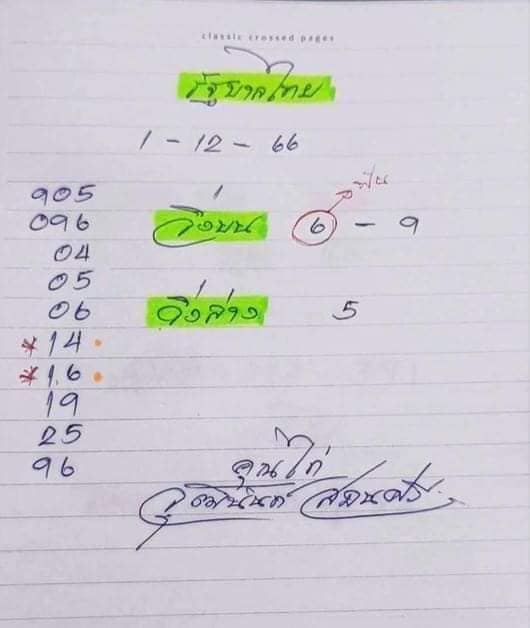 classic crossed pages
รัฐบาลไทย
1 - 12 - 66
905
096
04
05
06
*14 •
*16 •
19
25
96
วิ่งบน 6 - 9
ฟัน
วิ่งล่าง 5
คุณไก่